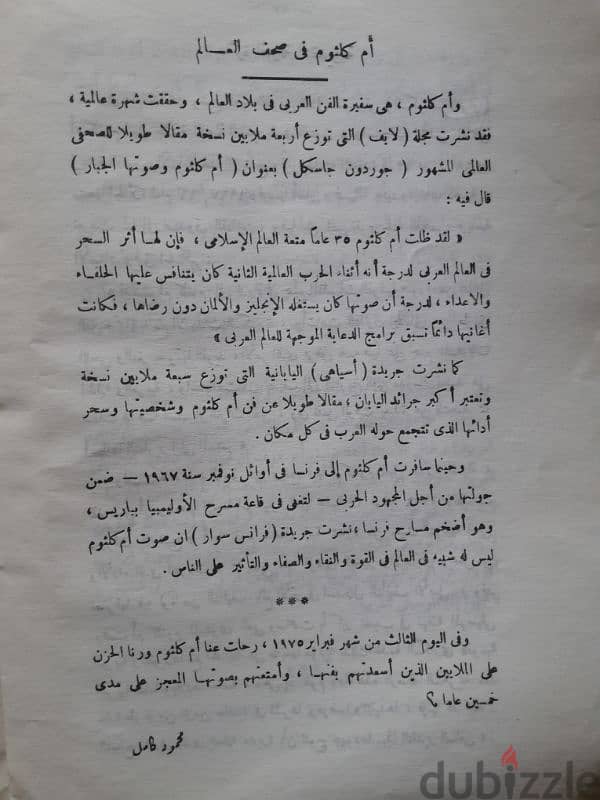 أم كلثوم فى صحف العـــالم
وأم كلثوم ، هى سفيرة الفن العربى فى بلاد العالم ، وحققت شهرة عالمية ،
فقد نشرت مجلة ( لايف ) التى توزع أربعة ملايين نسخة مقالا طويلا للصحفى
العالمى المشهور ( جوردون جاسكل ) بعنوان ( أم كلثوم وصوتها الجبار )
قال فيه :
« لقد ظلت أم كلثوم ٣٥ عاماً متعة العالم الإسلامى ، فإن لهـا أثر السحر
فى العالم العربى لدرجة أنه أثناء الحرب العالمية الثانية كان يتنافس عليها الحلفـاء
والاعداء ، لدرجة أن صوتها كان يستغله الإنجليز والألمان دون رضاها ، فكانت
أغانيها دائماً تسبق برامج الدعاية الموجهة للعالم العربى »
كما نشرت جريدة ( أسياهى ) اليابانية التى توزع سبعة ملايين نسخة
وتعتبر أكبر جرائد اليابان ، مقالا طويلا عن فن أم كلثوم وشخصيتها وسحر
أدائها الذى تتجمع حوله العرب فى كل مكان .
وحينما سافرت أم كلثوم إلى فرنسا فى أوائل نوفمبر سنة ١٩٦٧ – ضمن
جولتها من أجل المجهود الحربى – لتغنى فى قاعة مسرح الأوليمبيا بباريس ،
وهو أضخم مسارح فرنسا ، نشرت جريدة ( فرانس سوار ) ان صوت أم كلثوم
ليس له شبيه فى العالم فى القوة والنقاء والصفاء والتأثير على الناس .
***
وفى اليوم الثالث من شهر فبراير ١٩٧٥ ، رحلت عنا أم كلثوم ورنا الحزن
على الملايين الذين أسعدتهم بفنهـا ، وأمتعتهم بصوتهـا المعجز على مدى
خمسين عاما ؟
محمود كامل
dubizzle